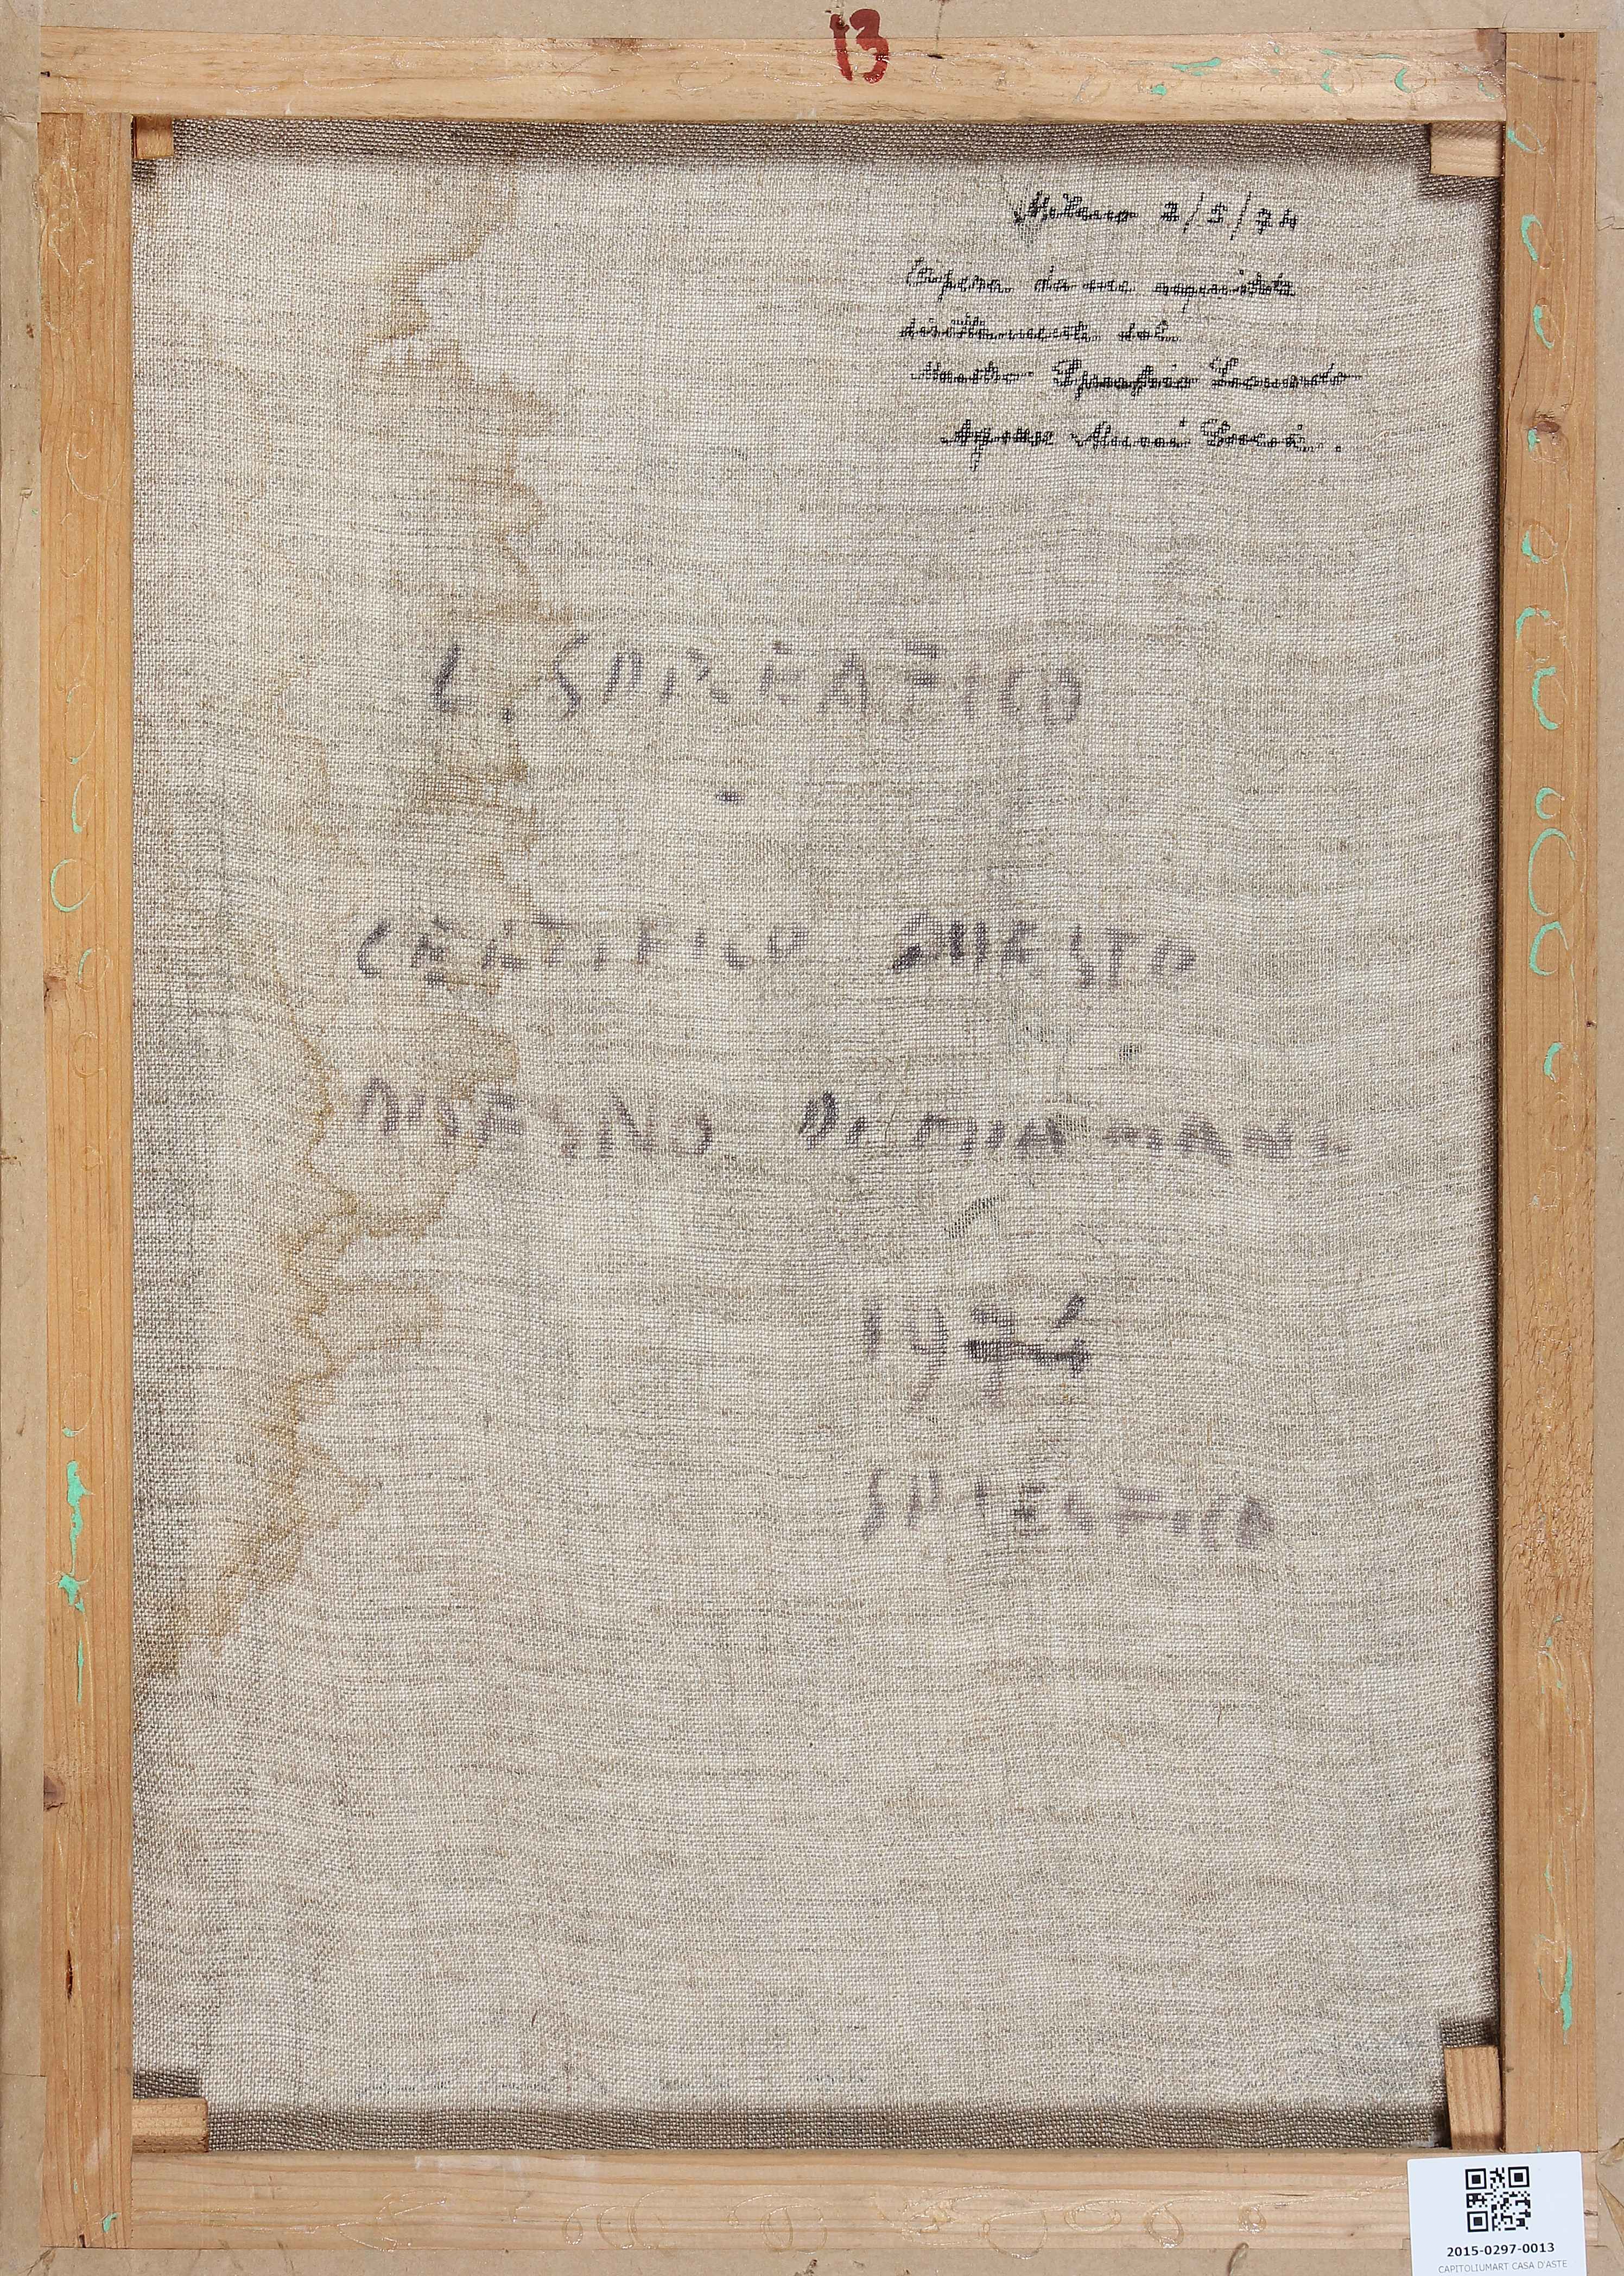 13
Milano 2/5/74
Opera da me acquistata
direttamente dal
Maestro Spreafico Leonardo
L. SPREAFICO
CERTIFICO QUESTO
DISEGNO DI MIA MANO
1974
SPREAFICO
2015-0297-0013
CAPITOLIUMART CASA D'ASTE